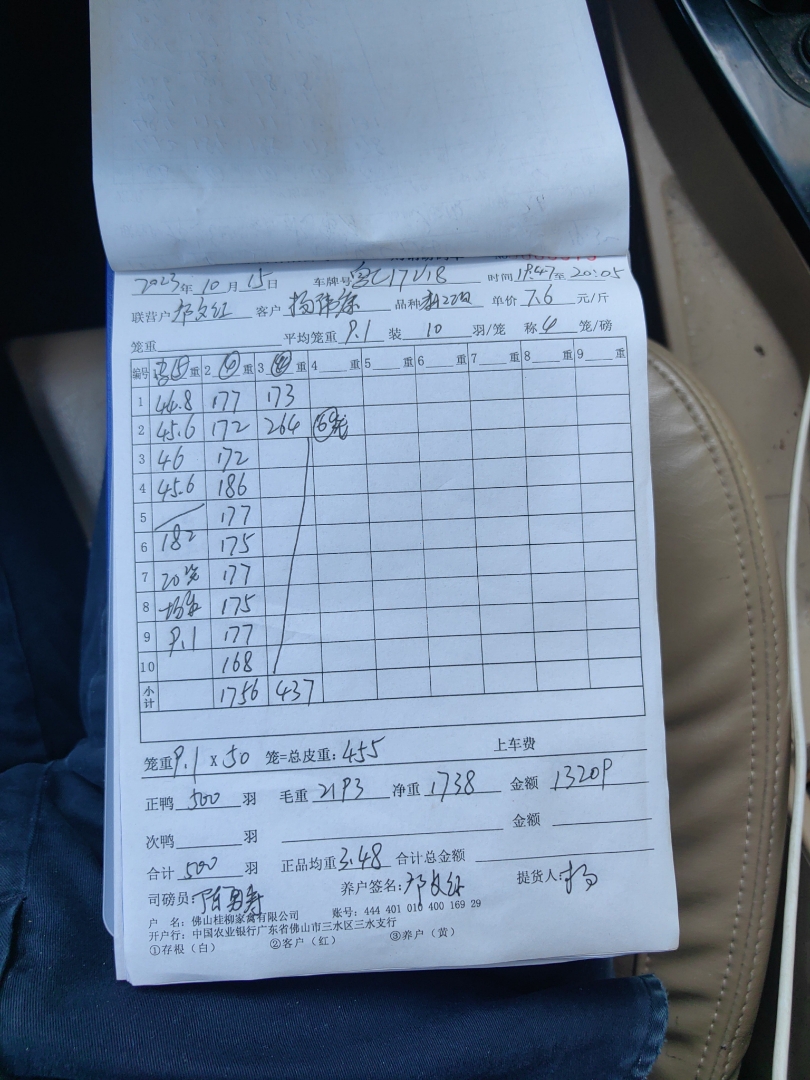 2023年10月15日 车牌号 时间19:47至20:05
联营户邓文红 客户 品种 单价7.6元/斤
笼重 平均笼重9.1装10羽/笼 称4笼/磅
编号 ⑤重 2④重 3④重 4重 5重 6重 7重 8重 9重
1 44.8 177 173
2 45.6 172 264 ⑥笼
3 46 172
4 45.6 186
5 177
6 182 175
7 20笼 177
8 均重 175
9 9.1 177
10 168
小计 1756 437
笼重9.1×50笼=总皮重:455 上车费
正鸭500羽 毛重2193净重1738 金额13209
次鸭羽 金额
合计500羽 正品均重3.48 合计总金额
司磅员: 养户签名:邓文红 提货人:杨
户 名:佛山桂柳家禽有限公司 账号:444 401 010 400 169 29
开户行:中国农业银行广东省佛山市三水区三水支行
①存根(白) ②客户(红) ③养户(黄)